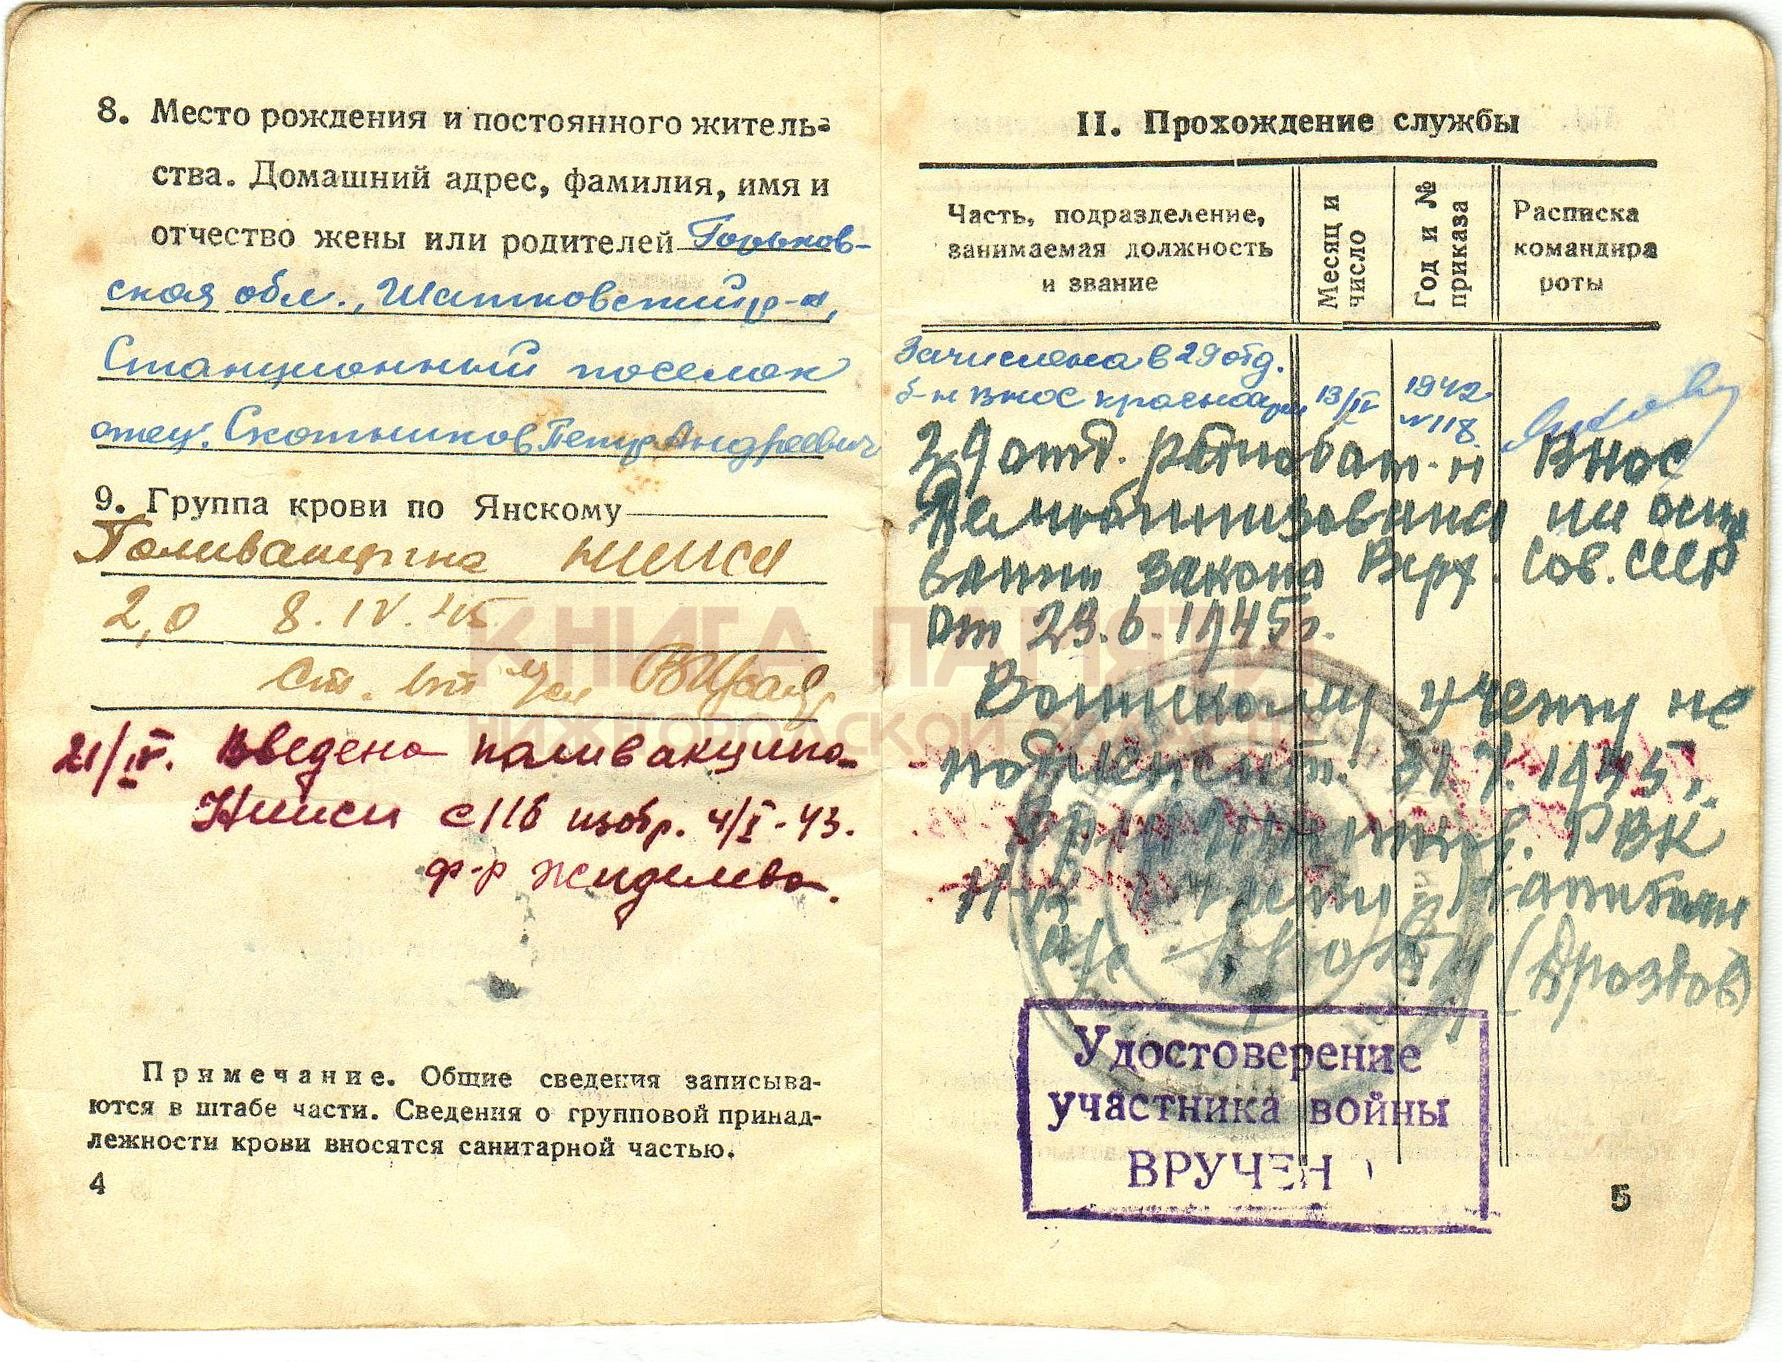 8. Место рождения и постоянного житель-
ства. Домашний адрес, фамилия, имя и
отчество жены или родителей Горьков-
ская обл., Шатковский р-н,
Станционный поселок
отец. Скотников Петр Андреевич
9. Группа крови по Янскому
Поливакцина НИИСИ
2,0 8.IV.45
Ст.
21/IV. Введена поливакцина
НИИСИ с 116 изобр. 4/I-43.
ф-р Жиделева.
Примечание. Общие сведения записыва-
ются в штабе части. Сведения о групповой принад-
лежности крови вносятся санитарной частью.
4
II. Прохождение службы
Часть, подразделение,
занимаемая должность
и звание
Месяц и
число
Год и №
приказа
Расписка
командира
роты
Зачислена в 29 отд.
б-н ВНОС красноарм 13/IV 1942 №118.
29 отд. бат-н ВНОС
Демобилизована на осно
вании закона Верх. Сов. СССР
от 23.6.1945г.
Воинскому учету не
подлежит. 31.7.1945г.
РВК
Капитан
а/с (Дроздов)
Удостоверение
участника войны
ВРУЧЕН
5
КНИГА ПАМЯТИ
НИЖЕГОРОДСКОЙ ОБЛАСТИ